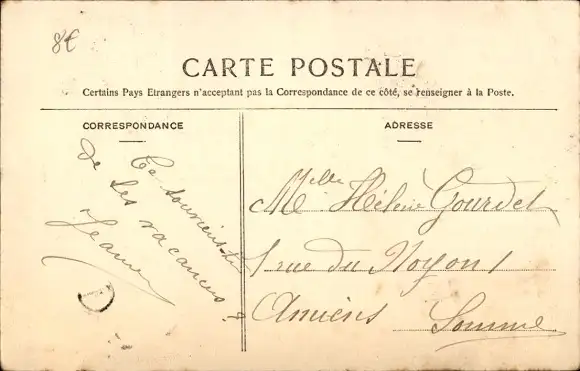 8€
CARTE POSTALE
Certains Pays Etrangers n'acceptant pas la Correspondance de ce côté, se renseigner à la Poste.
CORRESPONDANCE
Te souviens-tu
de tes vacances ?
Jeanne
ADRESSE
Mlle Hélène Gourdet
1 rue du Noyon 1
Amiens Somme